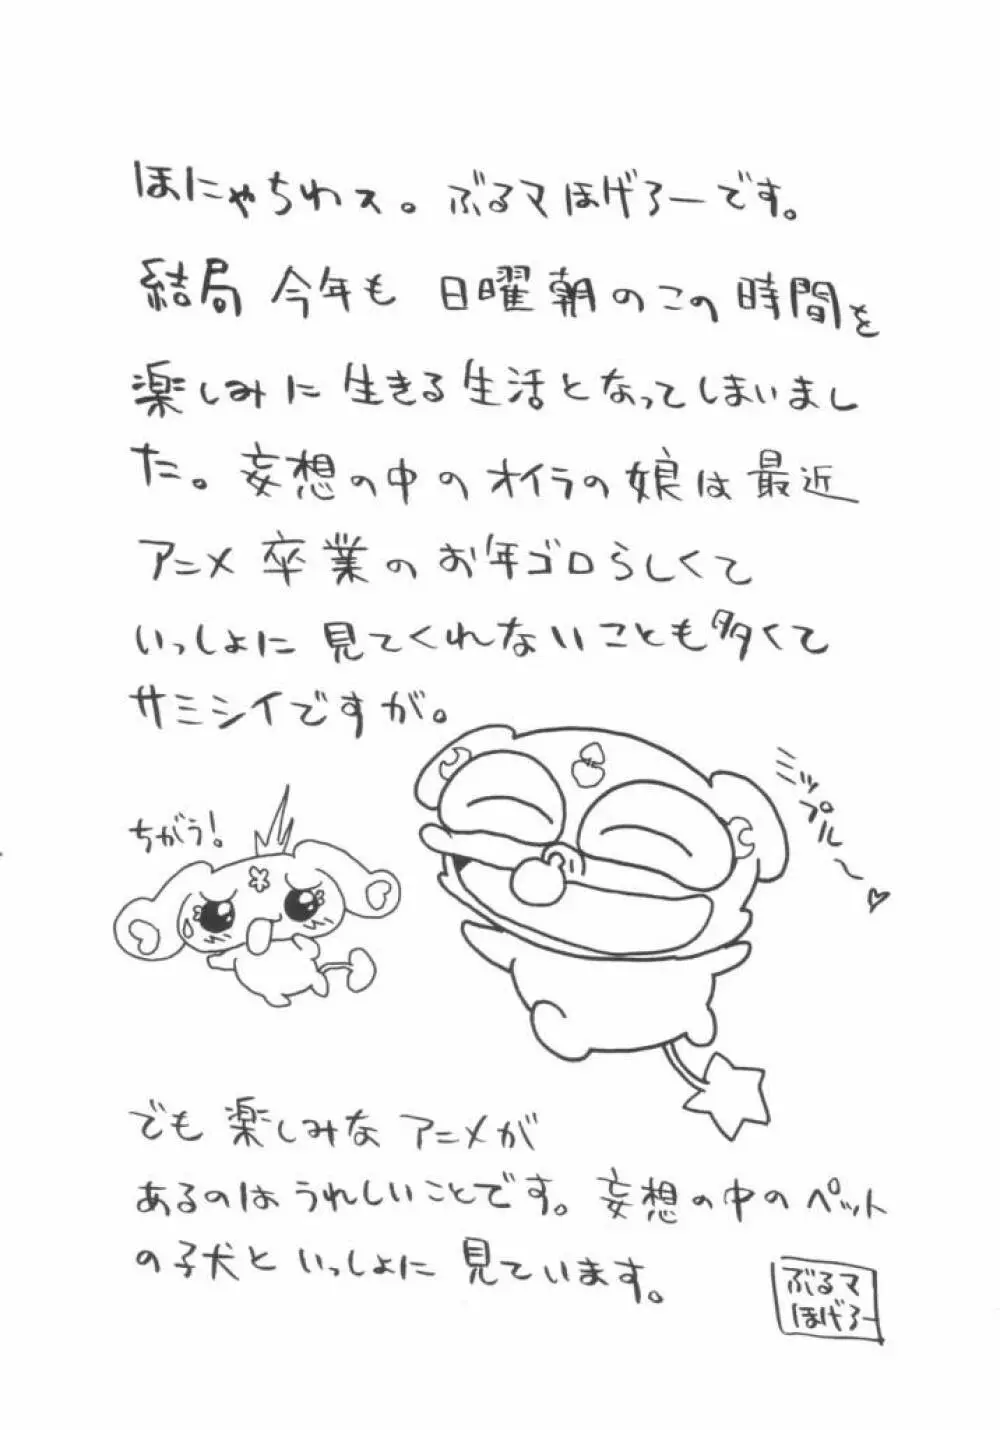 ほにゃちわス。ぶるマほげろーです。
結局今年も日曜朝のこの時間を
楽しみに生きる生活となってしまいまし
た。妄想の中のオイラの娘は最近
アニメ卒業のお年ゴロらしくて
いっしょに見てくれないことも多くて
サミシイですが。
ちがう!
ミップル〜♡
でも楽しみなアニメが
あるのはうれしいことです。妄想の中のペット
の子犬といっしょに見ています。
ぶるマ
ほげろー